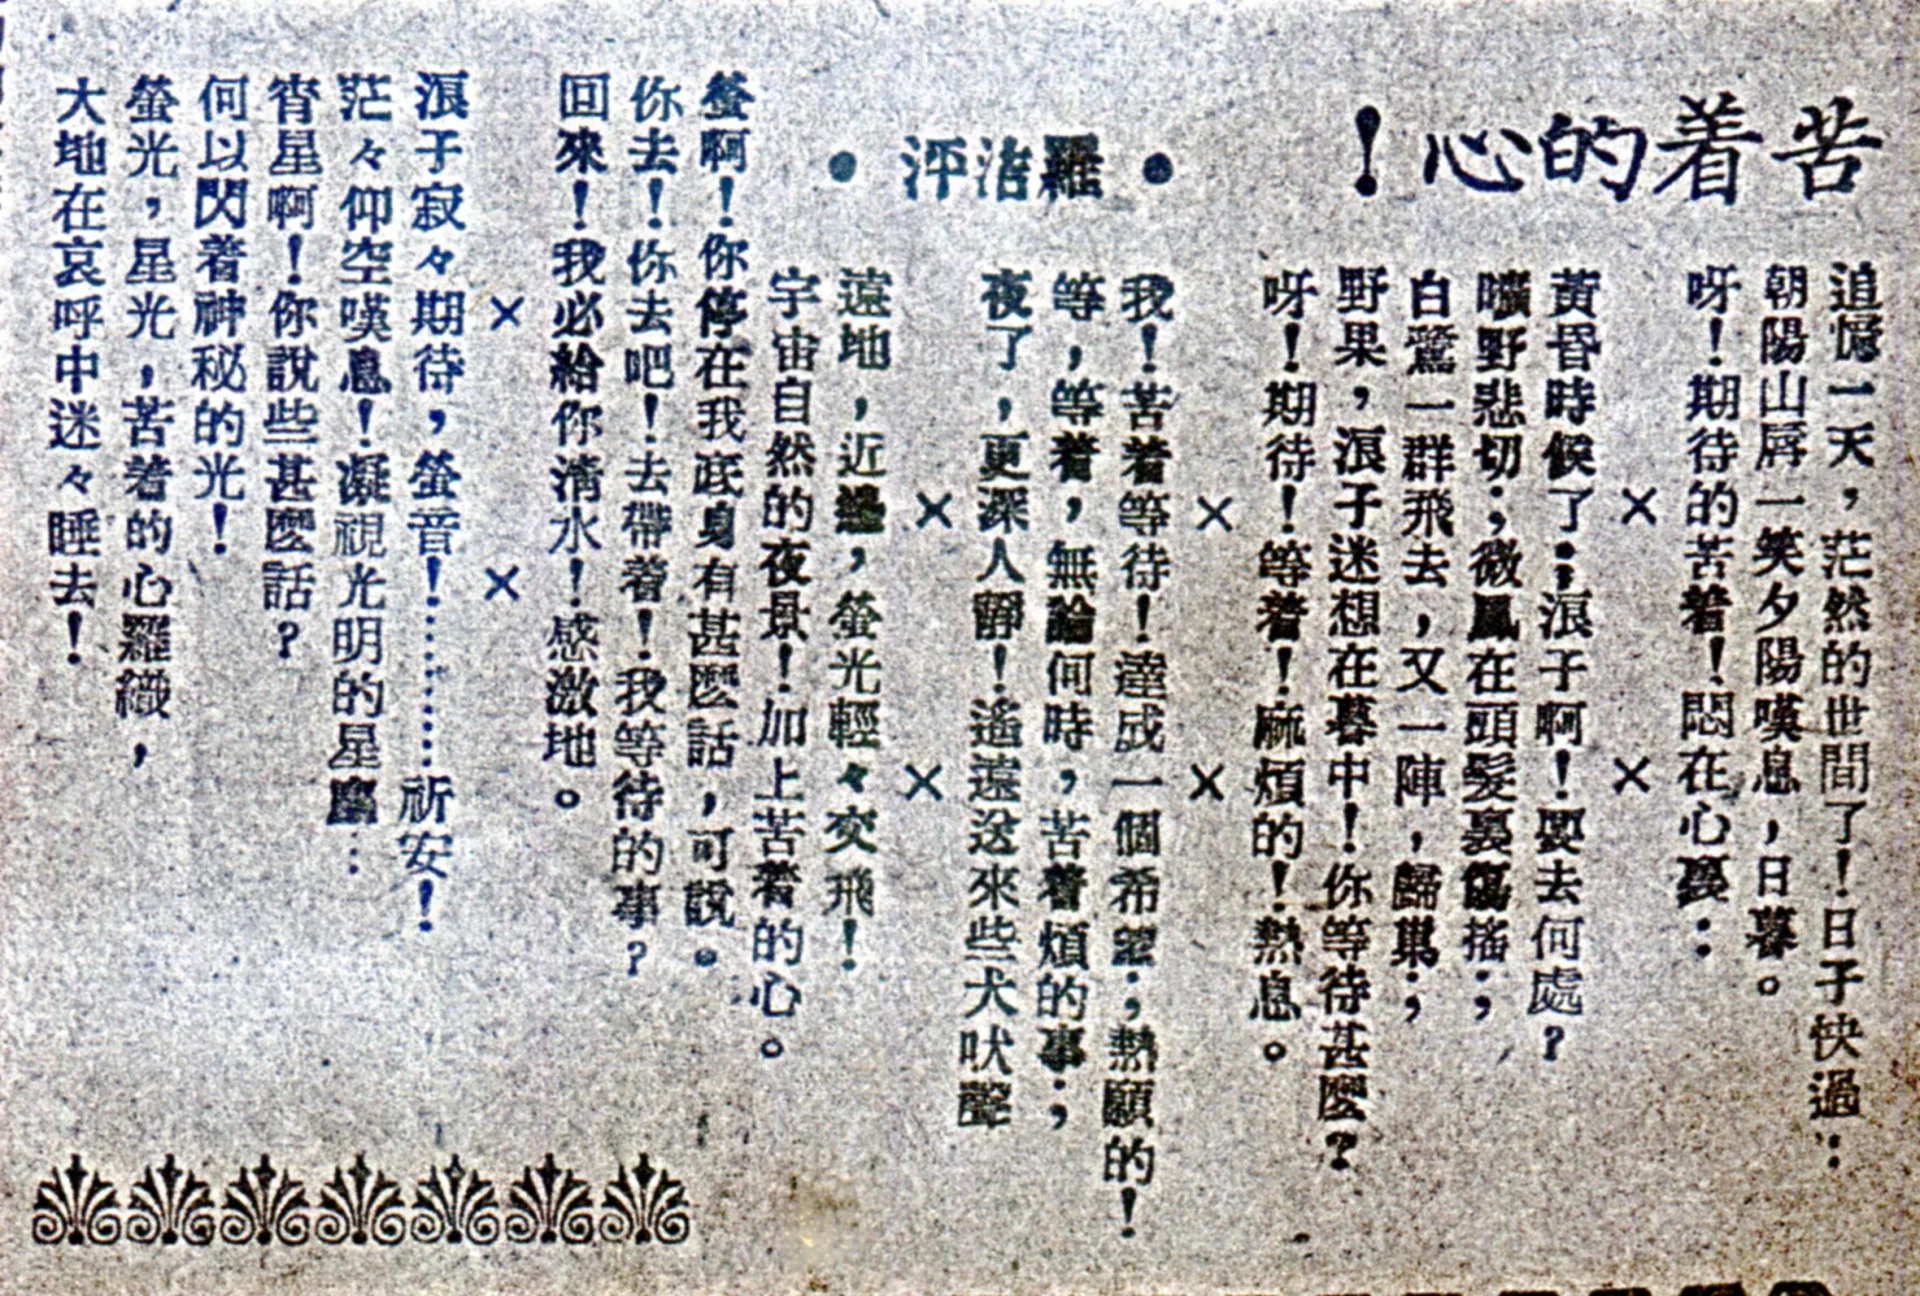 苦着的心！
•羅治泙•
追憶一天，茫然的世間了！日子快過：
朝陽山唇一笑夕陽嘆息，日暮。
呀！期待的苦着！悶在心裏：
× ×
黃昏時候了；浪子啊！要去何處？
曠野悲切；微風在頭髮裏傷搖；
白鷺一群飛去，又一陣，歸巢；
野果，浪子迷想在暮中！你等待甚麼？
呀！期待！等着！麻煩的！熱息。
× ×
我！苦着等待！達成一個希望；熱願的！
等，等着，無論何時，苦着煩的事；
夜了，更深人靜！遙遠送來些犬吠聲
× ×
遠地，近邊，螢光輕々交飛！
宇宙自然的夜景！加上苦着的心。
螢啊！你停在我底身有甚麼話，可說。
你去！你去吧！去帶着！我等待的事？
回來！我必給你清水！感激地。
× ×
浪子寂々期待，螢音！………祈安！
茫々仰空嘆息！凝視光明的星座…
宵星啊！你說些甚麼話？
何以閃着神秘的光！
螢光，星光，苦着的心羅織，
大地在哀呼中迷々睡去！